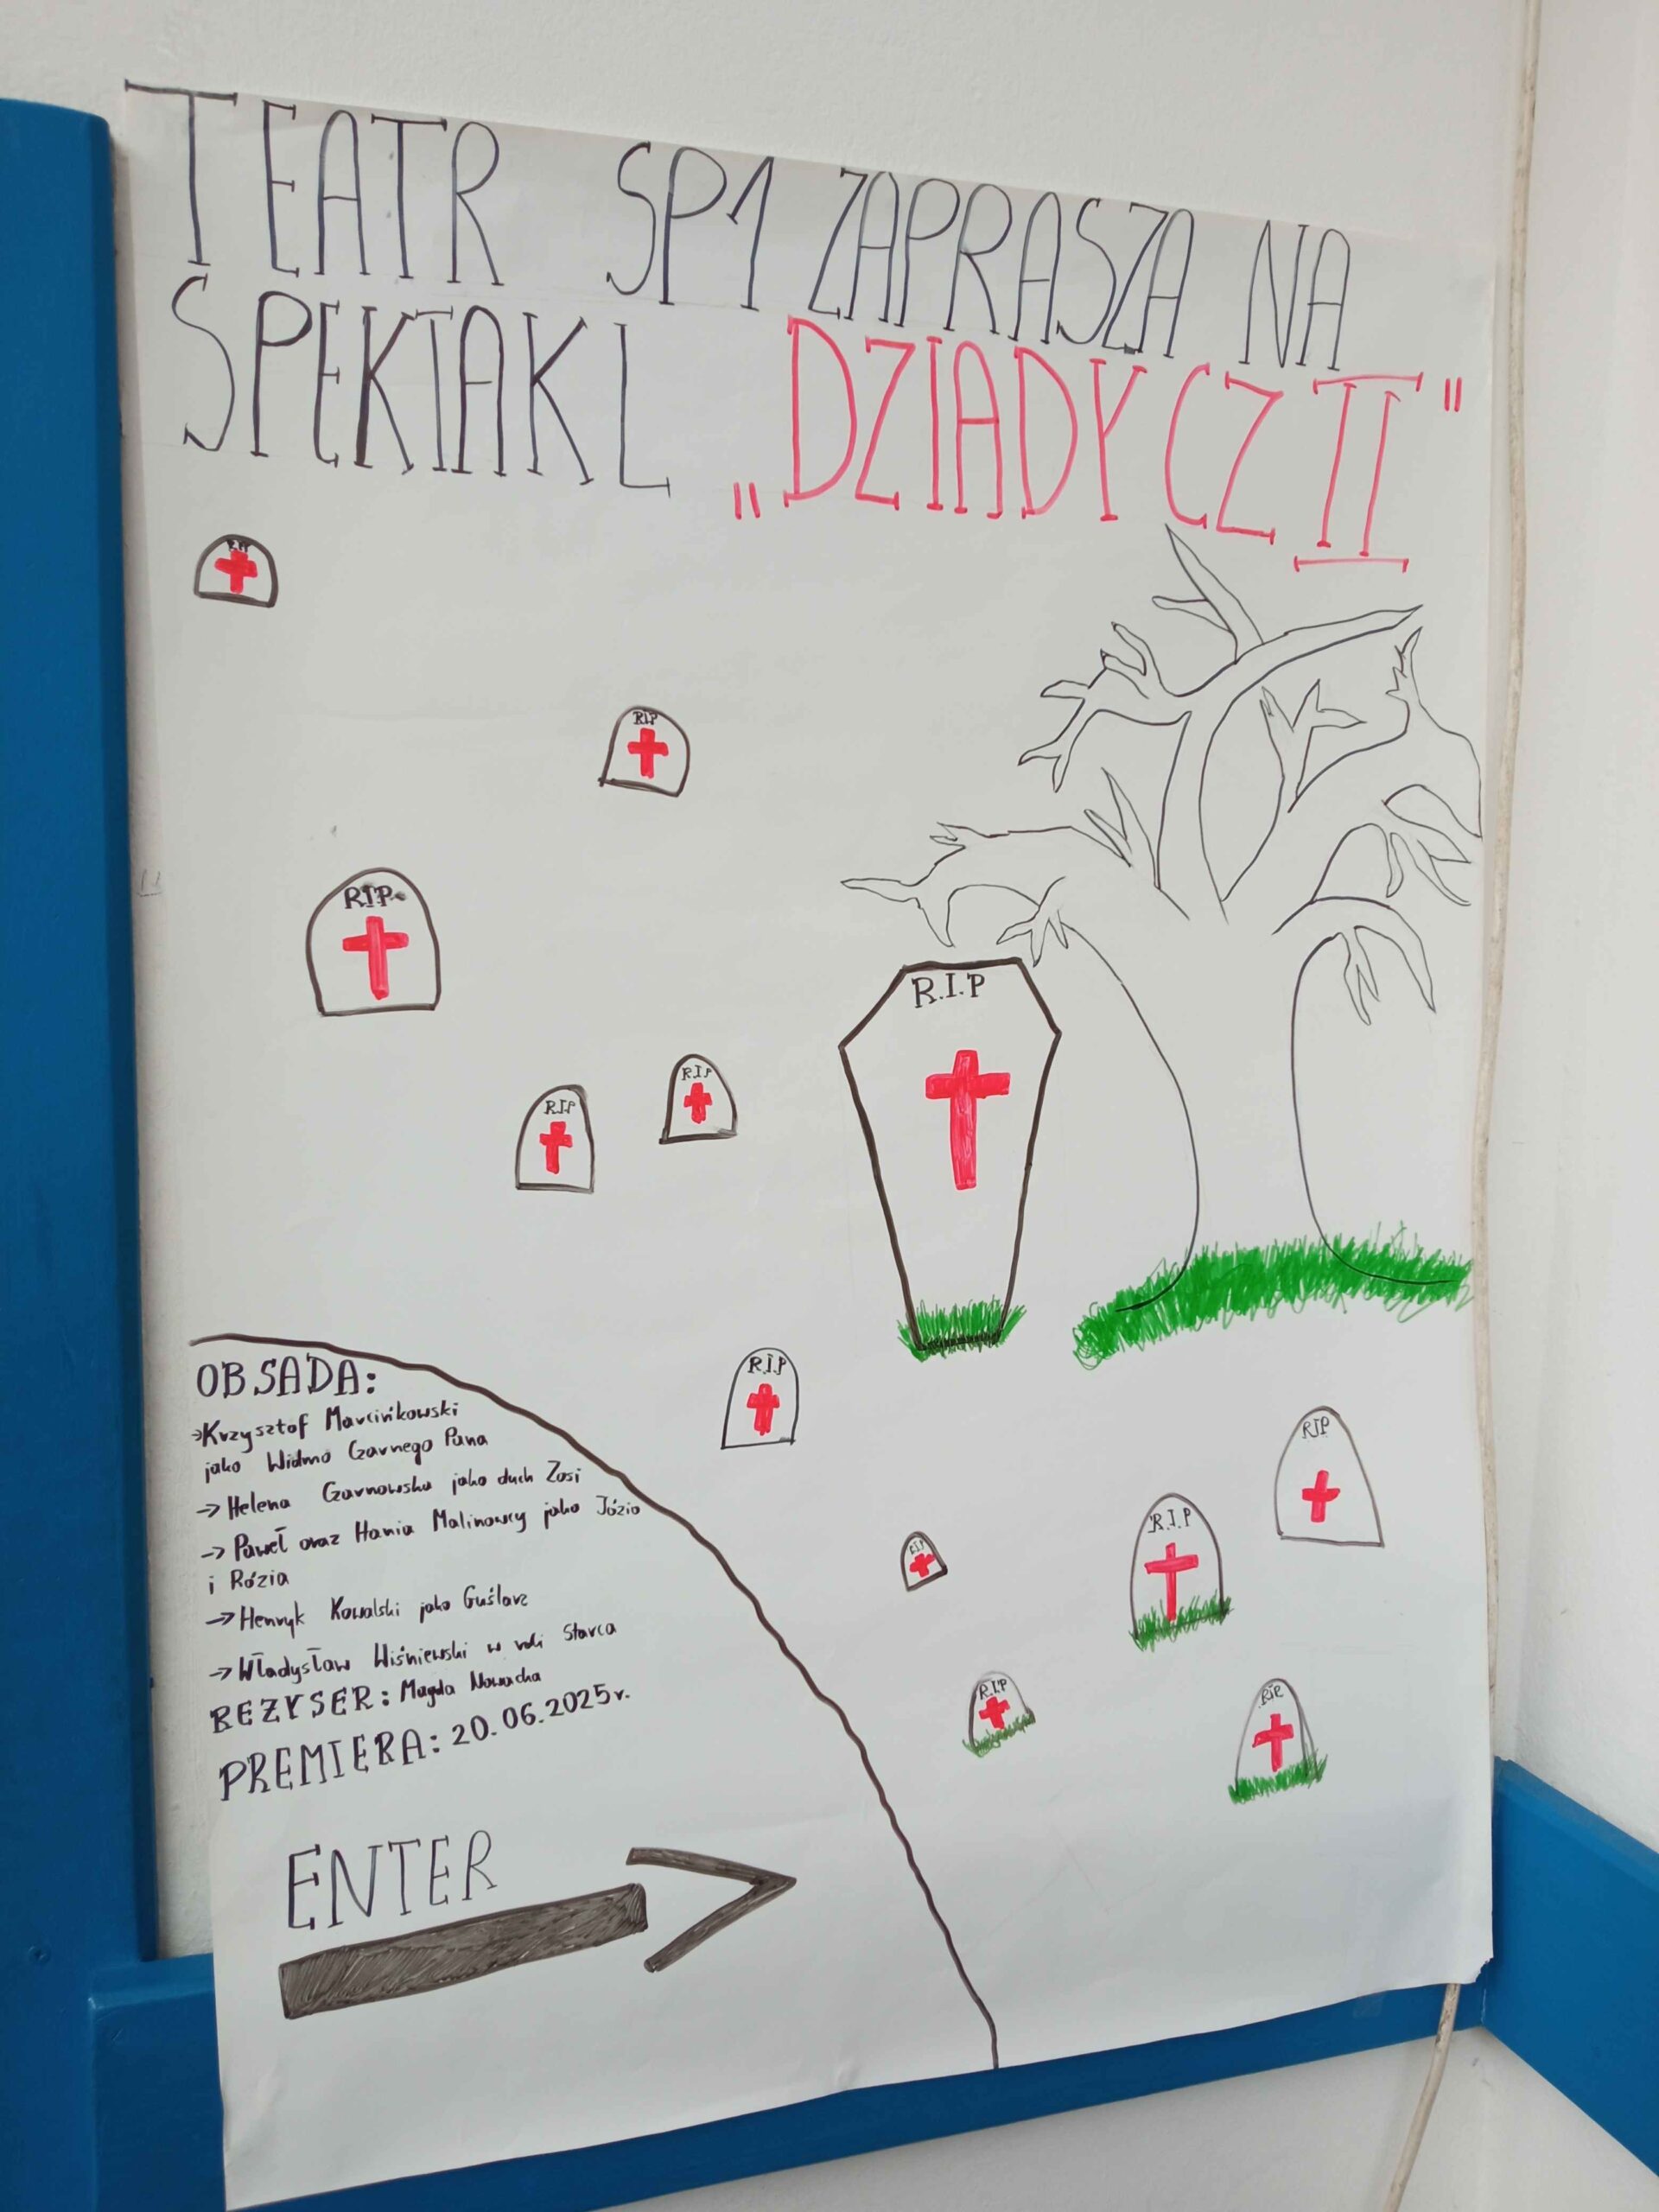 TEATR SP1 ZAPRASZA NA
SPEKTAKL „DZIADY CZ II"
RIP
RIP
R.I.P.
R.I.P
R.I.P
R.I.P
R.I.P
RIP
R.I.P
R.I.P
R.I.P
RIP
OBSADA:
→Krzysztof Marcińkowski
jako Widmo Czarnego Pana
→ Helena Czarnowska jako duch Zosi
→ Paweł oraz Hania Malinowcy jako Józio
i Rózia
→ Henryk Kowalski jako Guślarz
→ Władysław Wiśniewski w roli Starca
REŻYSER: Magda Nowacka
PREMIERA: 20.06.2025r.
ENTER